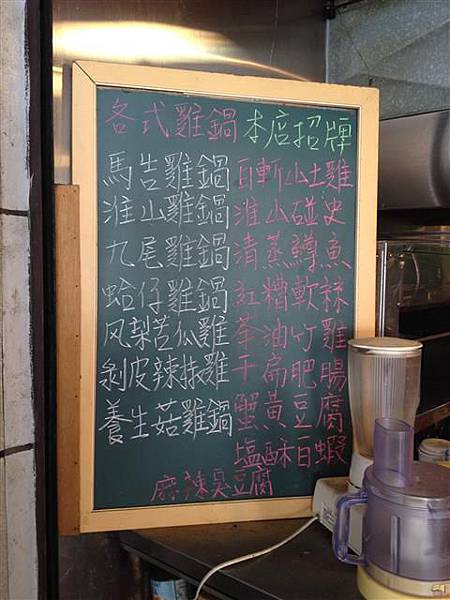 各式雞鍋
馬告雞鍋
淮山雞鍋
九尾雞鍋
蛤仔雞鍋
凤梨苦瓜雞
剝皮辣椒雞
養生菇雞鍋
本店招牌
白斬山土雞
淮山碰史
清蒸鱒魚
紅糟軟絲
茶油竹雞
干扁肥腸
蟹黃豆腐
塩酥白蝦
麻辣臭豆腐